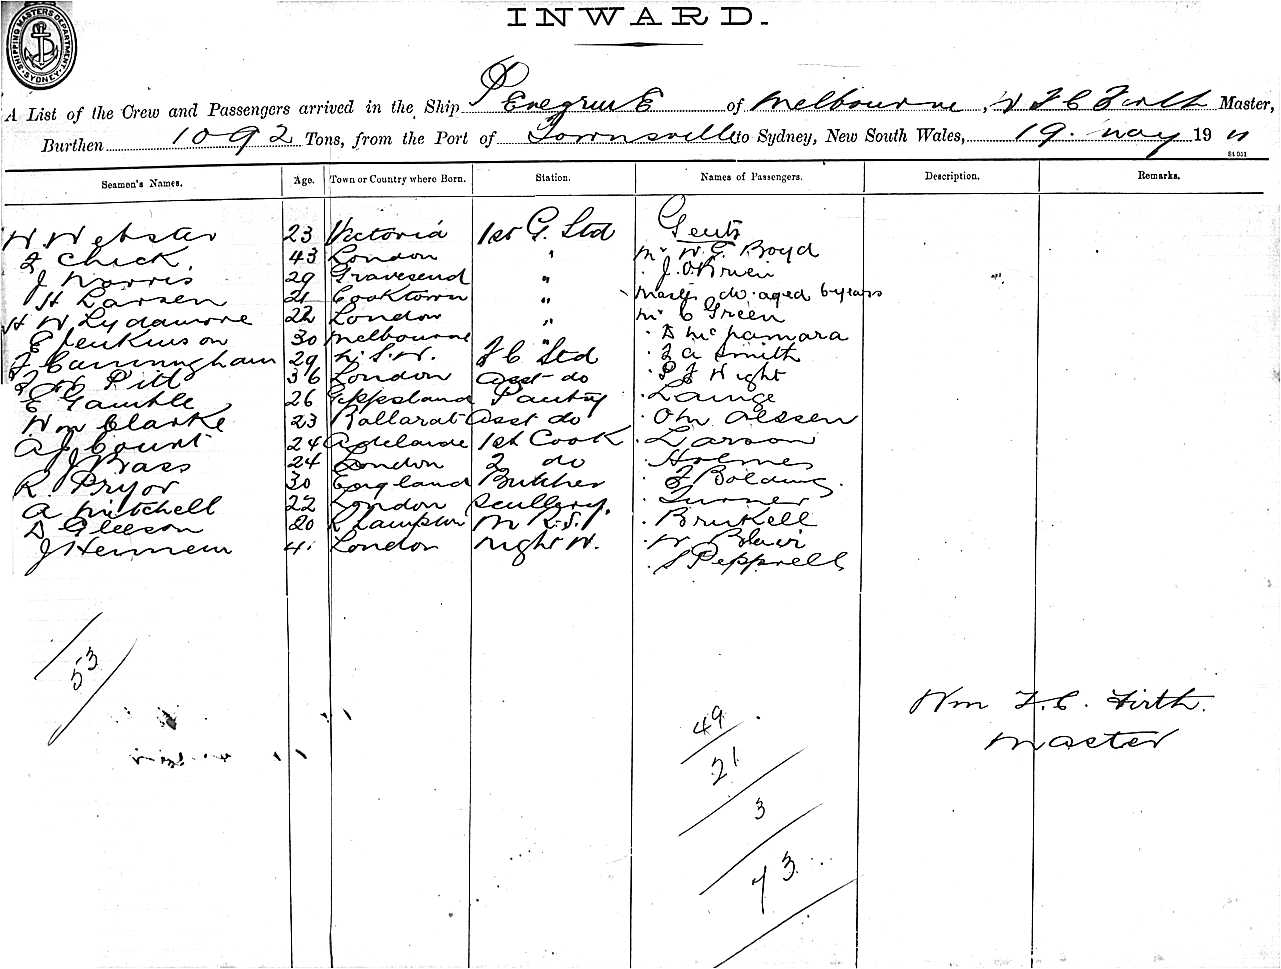 INWARD.
SHIPPING MASTERS DEPARTMENT SYDNEY
A List of the Crew and Passengers arrived in the Ship PEregrinE of Melbourne, W F C Firth Master,
Burthen 1092 Tons, from the Port of Townsville to Sydney, New South Wales, 19. May 19
Seamen's Names. Age. Town or Country where Born. Station. Names of Passengers. Description. Remarks.
W. Webster 23 Victoria 1st G. Std Gents
F Chick 43 London " Mr W. G. Boyd
J Norris 29 Gravesend " " J. O'Brien
H Larsen 21 Cooktown " Mast do. aged 6 years
H W Lydamore 22 London " Mr C Green
E Jenkinson 30 Melbourne " " D McNamara
F Cunningham 29 N. S. W. F C Std " F A Smith
Pitt 36 London Asst do " P J Wight
E Gamble 26 Gippsland Pantry "
Wm Clarke 23 Ballarat Asst do "
A J Court 24 Adelaide 1st Cook " Larson
J Bass 24 London 2 do " Holmes
R. Pryor 30 England Butcher " F Bolding
A Mitchell 22 London Scullery. " Turner
D Gleeson 20 M R. S. "
J 41 London Night W. " W Blair
" S Pepprell
53
Wm F. C. Firth.
Master
49
21
3
73